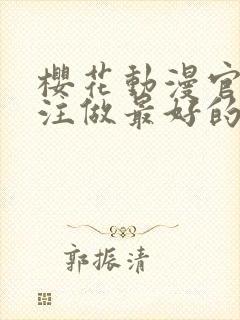 櫻花動漫官
注做最好的
郭振清